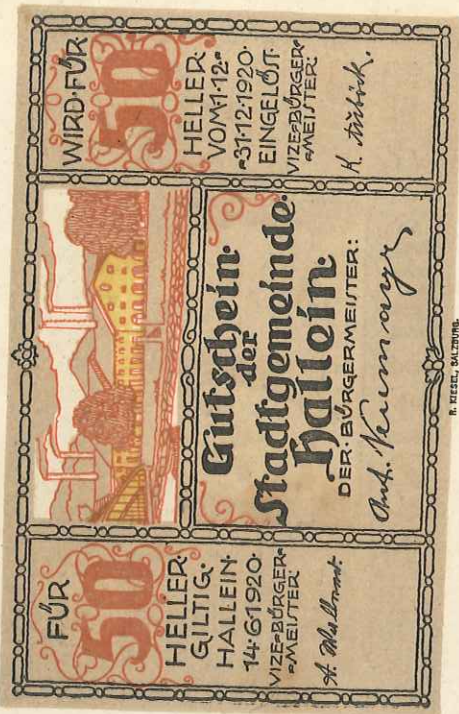 FÜR
50
HELLER
GILTIG·
HALLEIN·
14·6·1920·
VIZE=BÜRGER=
=MEISTER:
Gutschein·
·der·
Stadtgemeinde·
Hallein·
DER·BÜRGERMEISTER:
Ant. Neumayr
WIRD·FÜR
50
HELLER·
VOM·1·12·
=31·12·1920·
EINGELÖST·
VIZE=BÜRGER=
=MEISTER:
R. KIESEL, SALZBURG.